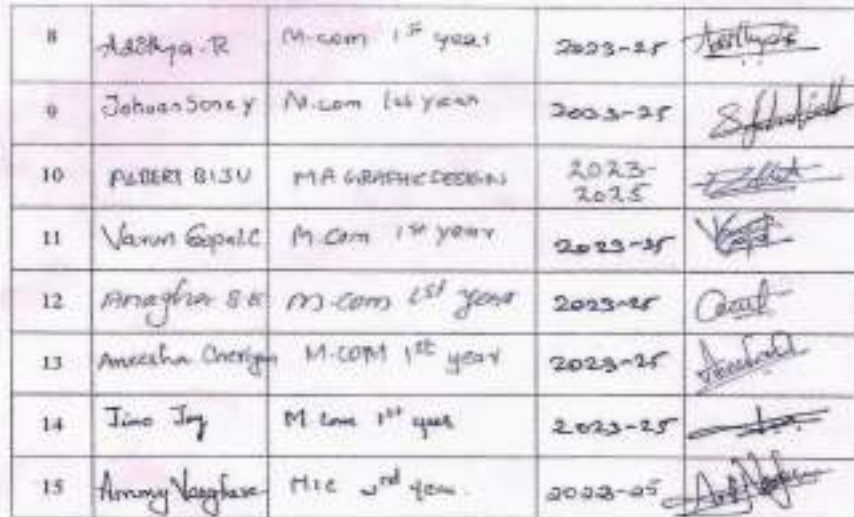 8 Adithya.R M-com 1st year 2023-25
9 Johan Soney M.com 1st year 2023-25
10 ALBERT BIJU MA GRAPHIC DESIGN 2023-
2025
11 Varun Gopal.C M.Com 1st year 2023-25
12 Anagha S B M-com 1st year 2023-25
13 Aneesha Cherian M.COM 1st year 2023-25
14 Jino Joy M.Com 1st year 2023-25
15 Ammy Varghese year 2023-25